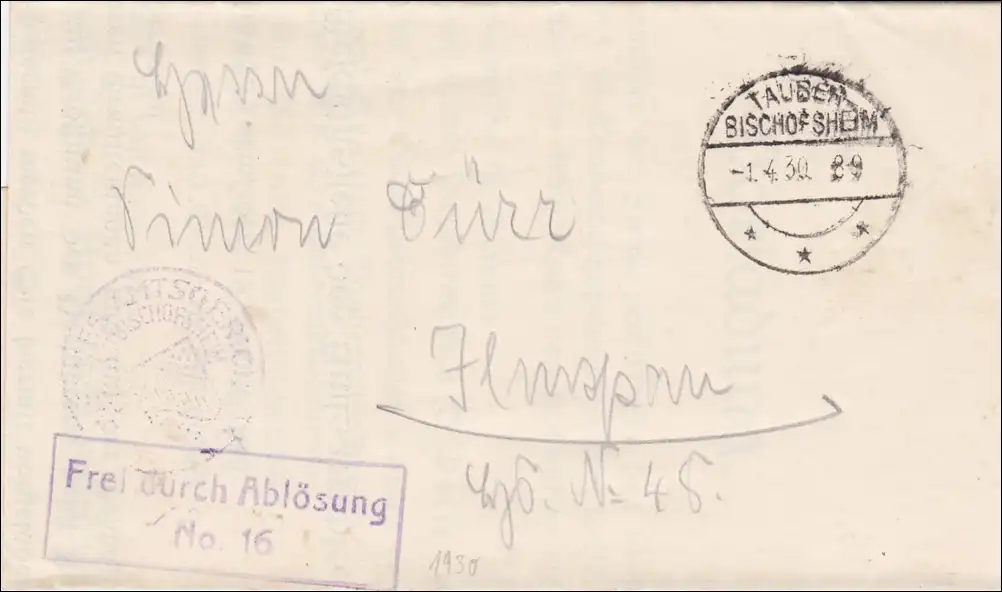 Herrn
TAUBER-
BISCHOFSHEIM
-1.4.30.
Simon Dürr
AMTSGERICHT
BISCHOFSHEIM
Ilmspan
Hs. Nr. 48.
Frei durch Ablösung
No. 16
1930